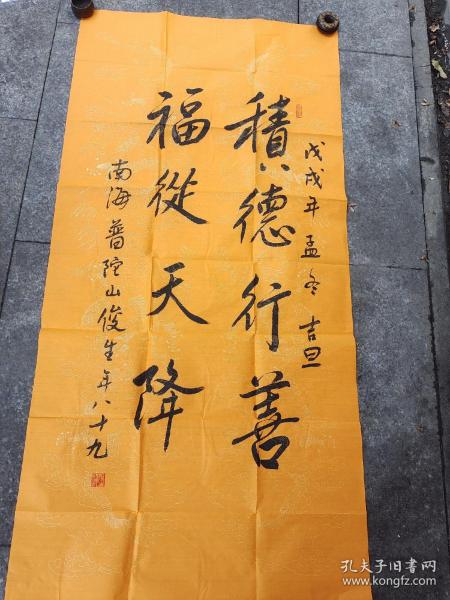 戊戌年孟冬吉旦
積德行善
福從天降
南海普陀山俊生年八十九
孔夫子旧书网
www.kongfz.com